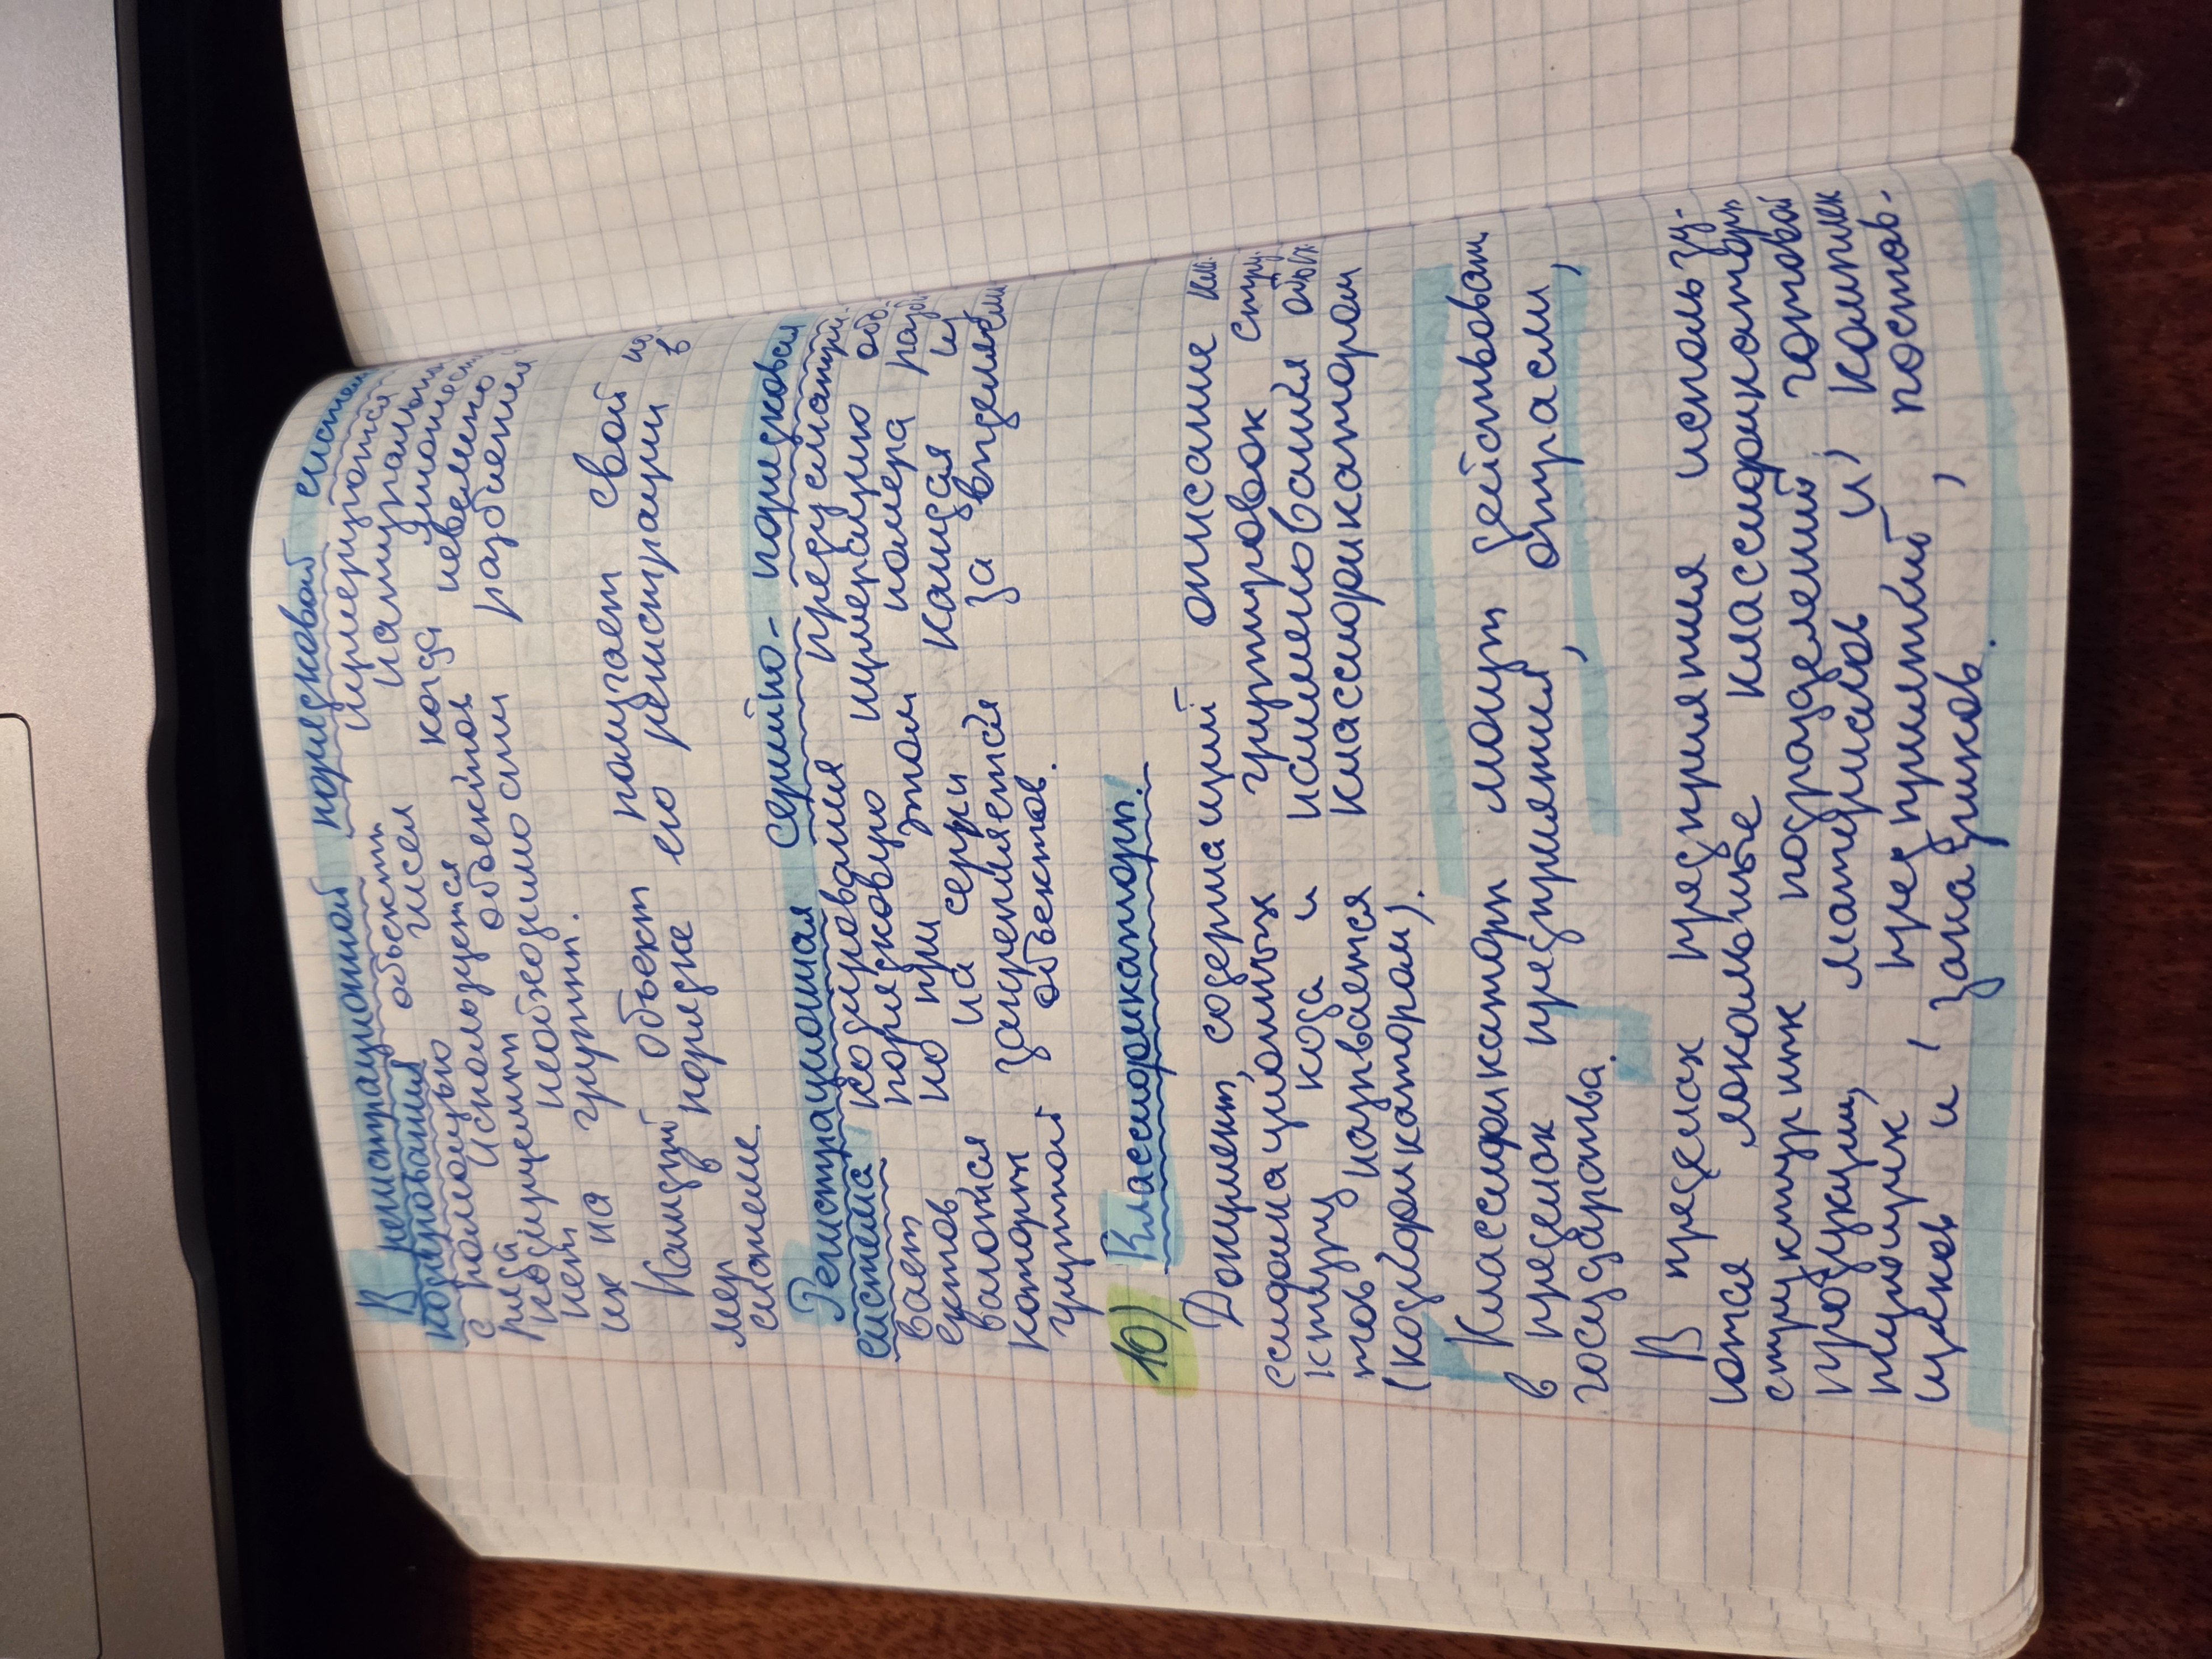 В регистрационной порядковой систем
кодирования объекты нумеруются
с помощью чисел натурально
ряда. Используется когда множест
кодируемых объектов невелико
нет необходимости разбиения
их на групп.
Каждый объект получает свой но
мер в порядке его регистрации в
системе.
Регистрационная серийно-порядковая
система кодирования предусматри-
вает порядковую нумерацию объ
ектов но при этом номера разби
ваются на серии каждая из
которых закрепляется за выделяем
группой объектов.
10) Классификаторы.
Документ, содержащий описание кла
ссификационных группировок стру
ктуру кода и наименования объек
тов называется классификатором
(кодификатором).
Классификаторы могут действовать
в пределах предприятия, отрасли,
государства.
В пределах предприятия использу-
ются локальные классификаторы
структурных подразделений, готовой
продукции, материалов и, комплек
тующих, предприятий, постав-
щиков и, заказчиков.